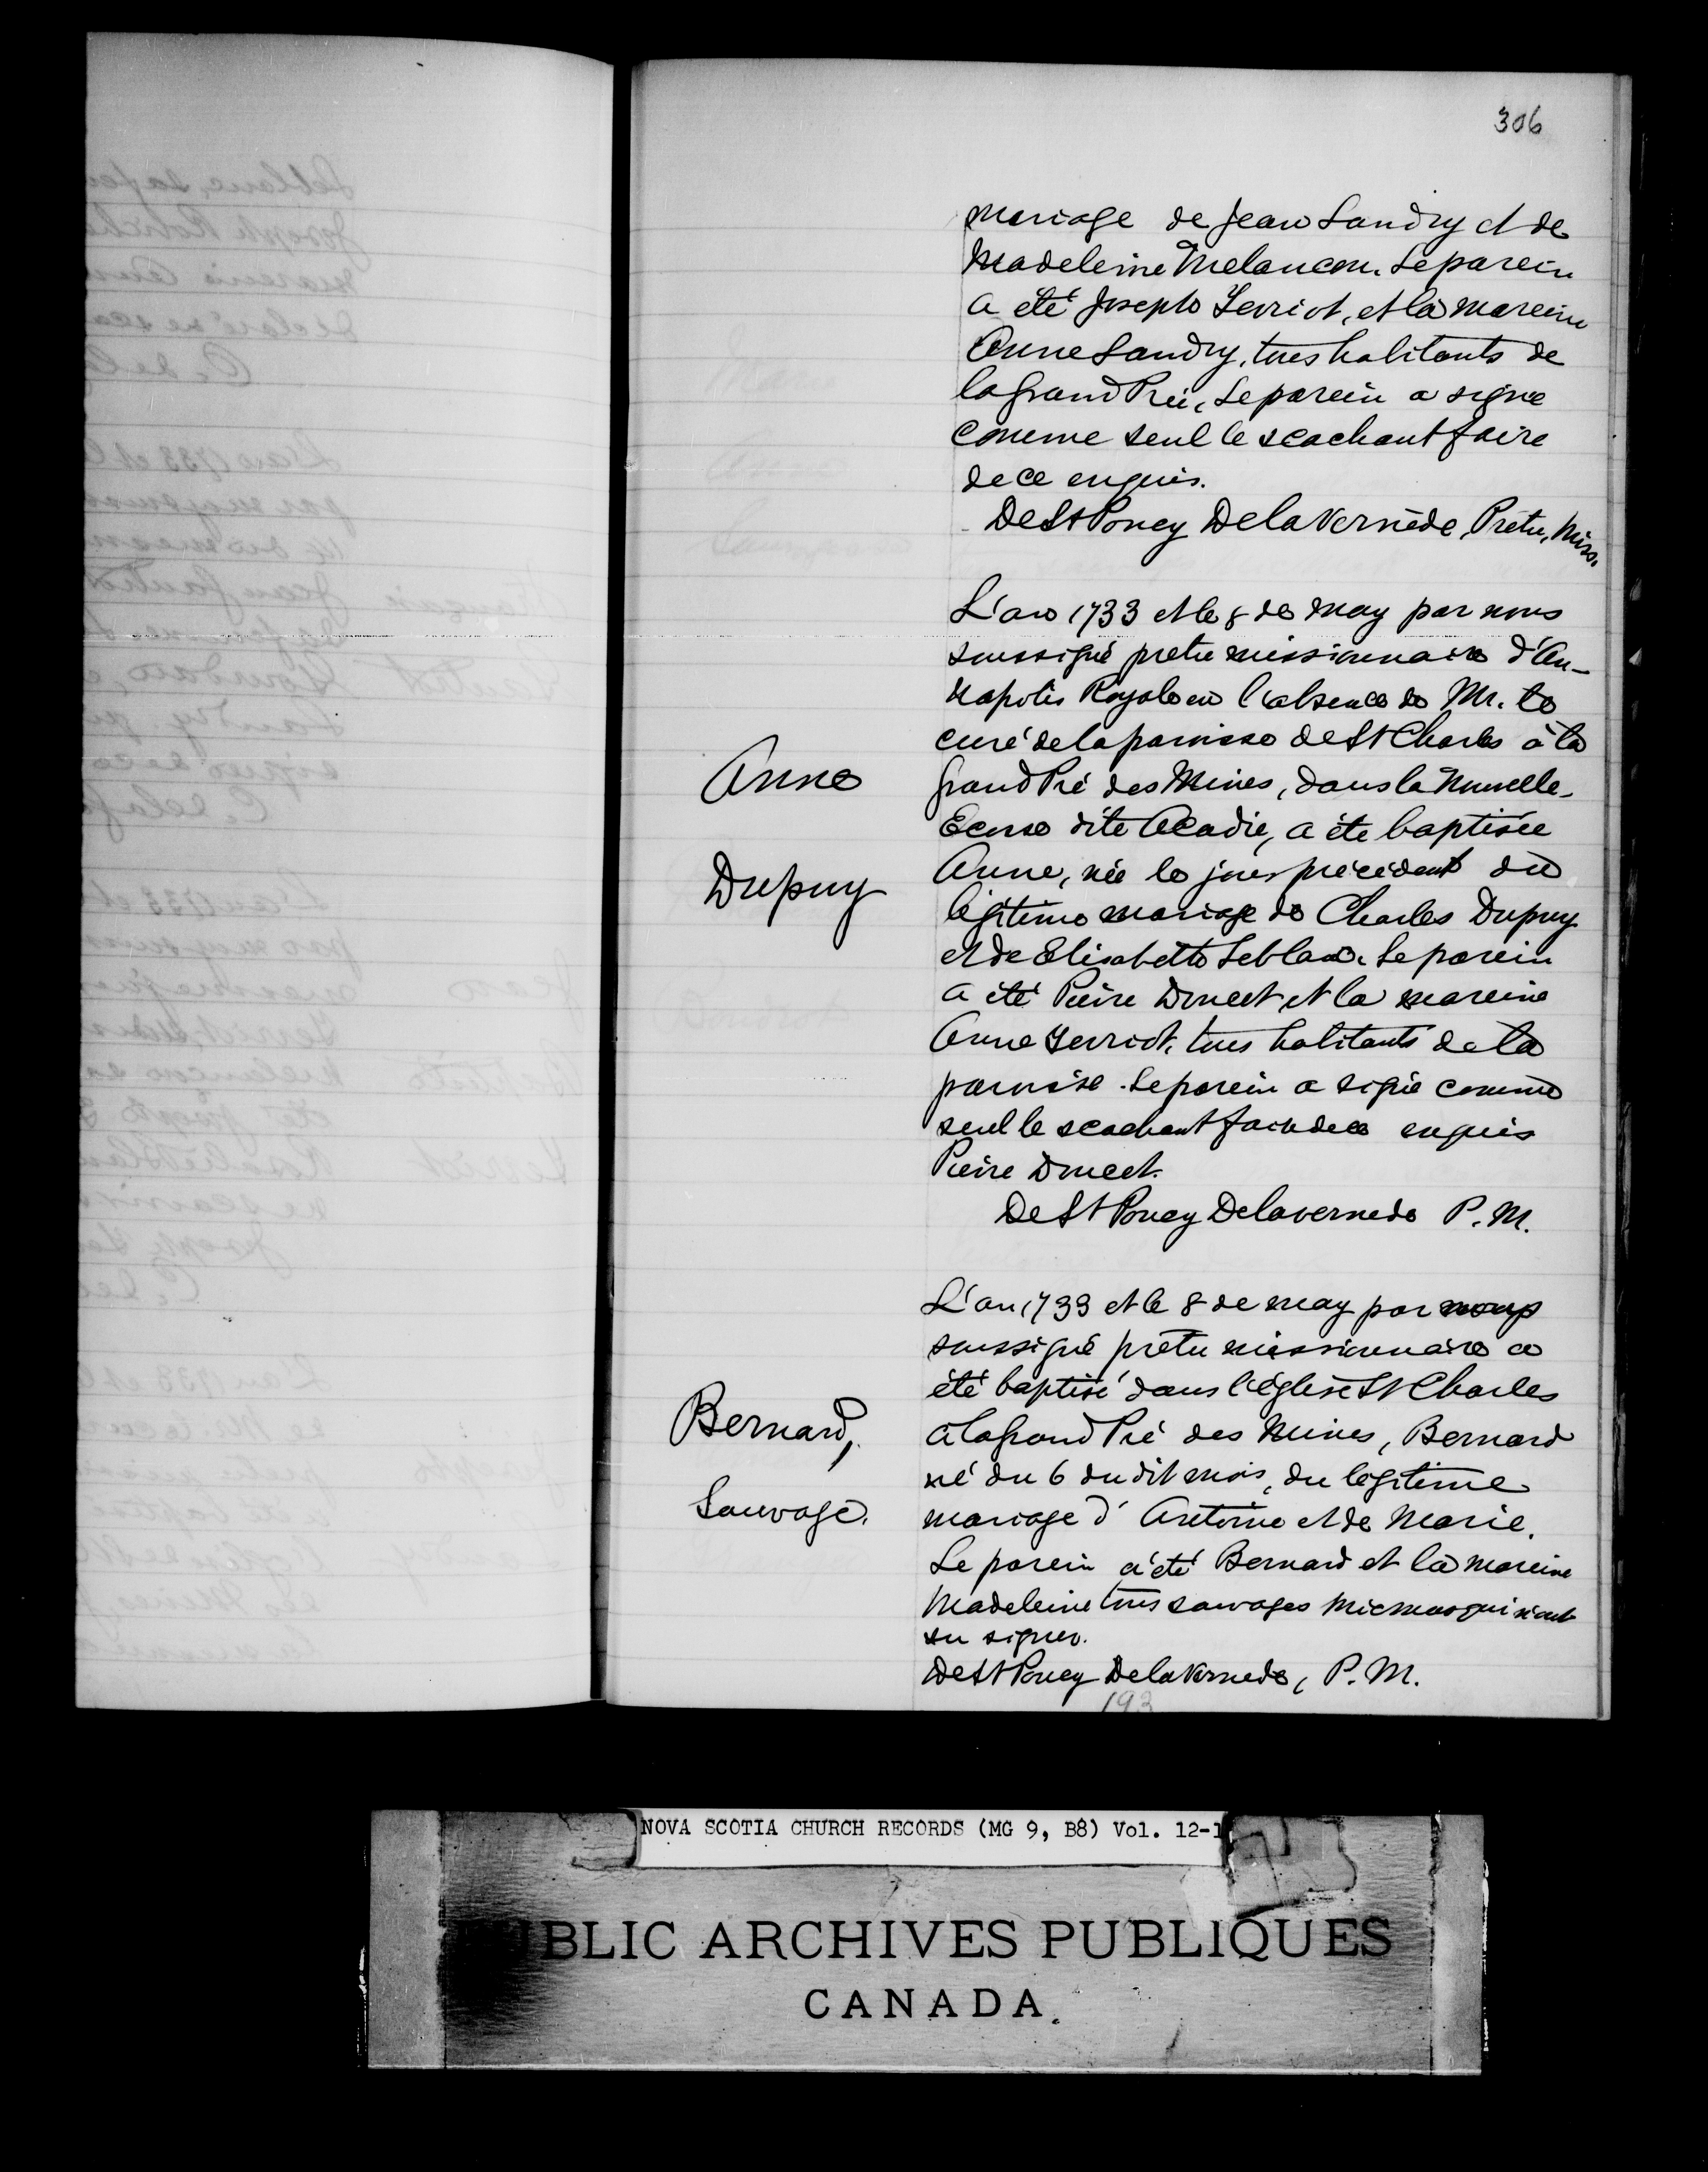 306
mariage de Jean Landry et de
Madeleine Melancon. Le parein
a été Joseph Terriot, et la mareine
Anne Landry, tous habitants de
la grand Préé, Le parein a signé
comme seul le scachant faire
de ce enquis.
De St Poncy Delavernède, Pretre, Miss.
L'an 1733 et le 8 de may par nous
soussigné pretre missionnaire d'An-
napolis Royale en l'absence de Mr. le
curé de la paroisse de St Charles à la
grand Pré des Mines, dans la Nouvelle-
Ecosse dite Acadie, a été baptisée
Anne, née le jour précédent du
légitime mariage de Charles Dupuy
et de Elisabette Leblanc. Le parein
a été Pierre Doucet et la mareine
Anne Terriot, tous habitants de la
paroisse. Le parein a signé comme
seul le scachant faire de ce enquis
Pierre Doucet.
De St Poncy Delavernede P. M.
Anne
Dupuy
L'an 1733 et le 8 de may par nous
soussigné pretre missionnaire a
été baptisé dans l'église St Charles
à la grand Pré des Mines, Bernard
né du 6 du dit mois, du légitime
mariage d'Antoine et de Marie.
Le parein a été Bernard et la mareine
Madeleine tous sauvages Micmacs qui n'ont
su signer.
De St Poncy Delavernede, P. M.
Bernard,
Sauvage.
193
NOVA SCOTIA CHURCH RECORDS (MG 9, B8) Vol. 12-1
PUBLIC ARCHIVES PUBLIQUES
CANADA